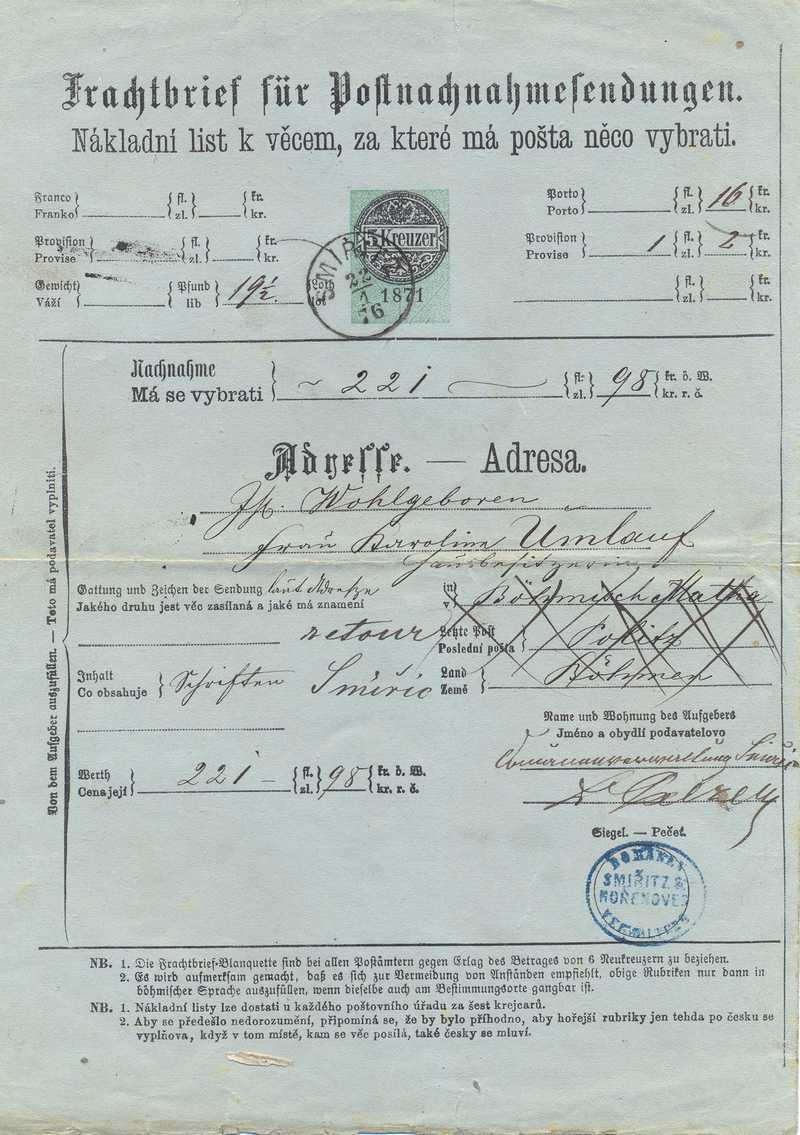 Frachtbrief für Postnachnahmesendungen.
Nákladní list k věcem, za které má pošta něco vybrati.
Franco fl. kr.
Franko zl. kr.
Provision fl. kr.
Provise zl. kr.
Gewicht Pfund 19½ Loth
Váží lib lot
5 Kreuzer
1871
SMIŘ
22
1
76
Porto fl. 16 kr.
Porto zl. kr.
Provision 1 fl. 2 kr.
Provise zl. kr.
fl. kr.
zl. kr.
Nachnahme 221 fl. 98 kr. ö. W.
Má se vybrati zl. kr. r. č.
Adresse. — Adresa.
Wohlgeboren
Frau Karoline Umlauf
Hausbesitzerin
Gattung und Zeichen der Sendung laut Adresse
Jakého druhu jest věc zasílaná a jaké má znamení
retour
Smiřic
in Böhmisch Matha
v
Letzte Post Politz
Poslední pošta
Land Böhmen
Země
Inhalt Schriften
Co obsahuje
Werth 221 fl. 98 kr. ö. W.
Cena její zl. kr. r. č.
Name und Wohnung des Aufgebers
Jméno a obydlí podavatelovo
Siegel. — Pečeť.
DOMÄNEN
SMIRITZ &
HOŘENOVES
VERWALTUNG
Von dem Aufgeber auszufüllen. — Teto má podavatel vyplniti.
NB. 1. Die Frachtbrief-Blanquette sind bei allen Postämtern gegen Erlag des Betrages von 6 Neukreuzern zu beziehen.
2. Es wird aufmerksam gemacht, daß es sich zur Vermeidung von Anständen empfiehlt, obige Rubriken nur dann in
böhmischer Sprache auszufüllen, wenn dieselbe auch am Bestimmungsorte gangbar ist.
NB. 1. Nákladní listy lze dostati u každého poštovního úřadu za šest krejcarů.
2. Aby se předešlo nedorozumění, připomíná se, že by bylo příhodno, aby hořejší rubriky jen tehda po česku se
vyplňova, když v tom místě, kam se věc posílá, také česky se mluví.